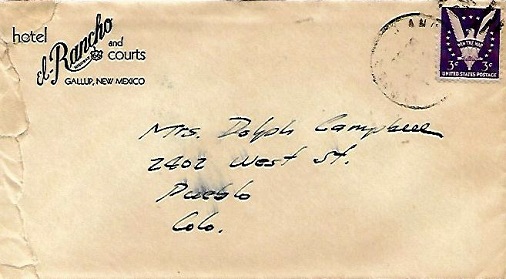 hotel
el-Rancho
and
courts
GALLUP, NEW MEXICO
WIN THE WAR
3¢ 3¢
UNITED STATES POSTAGE
Mrs. Dolph Campbell
2402 West St.
Pueblo
Colo.